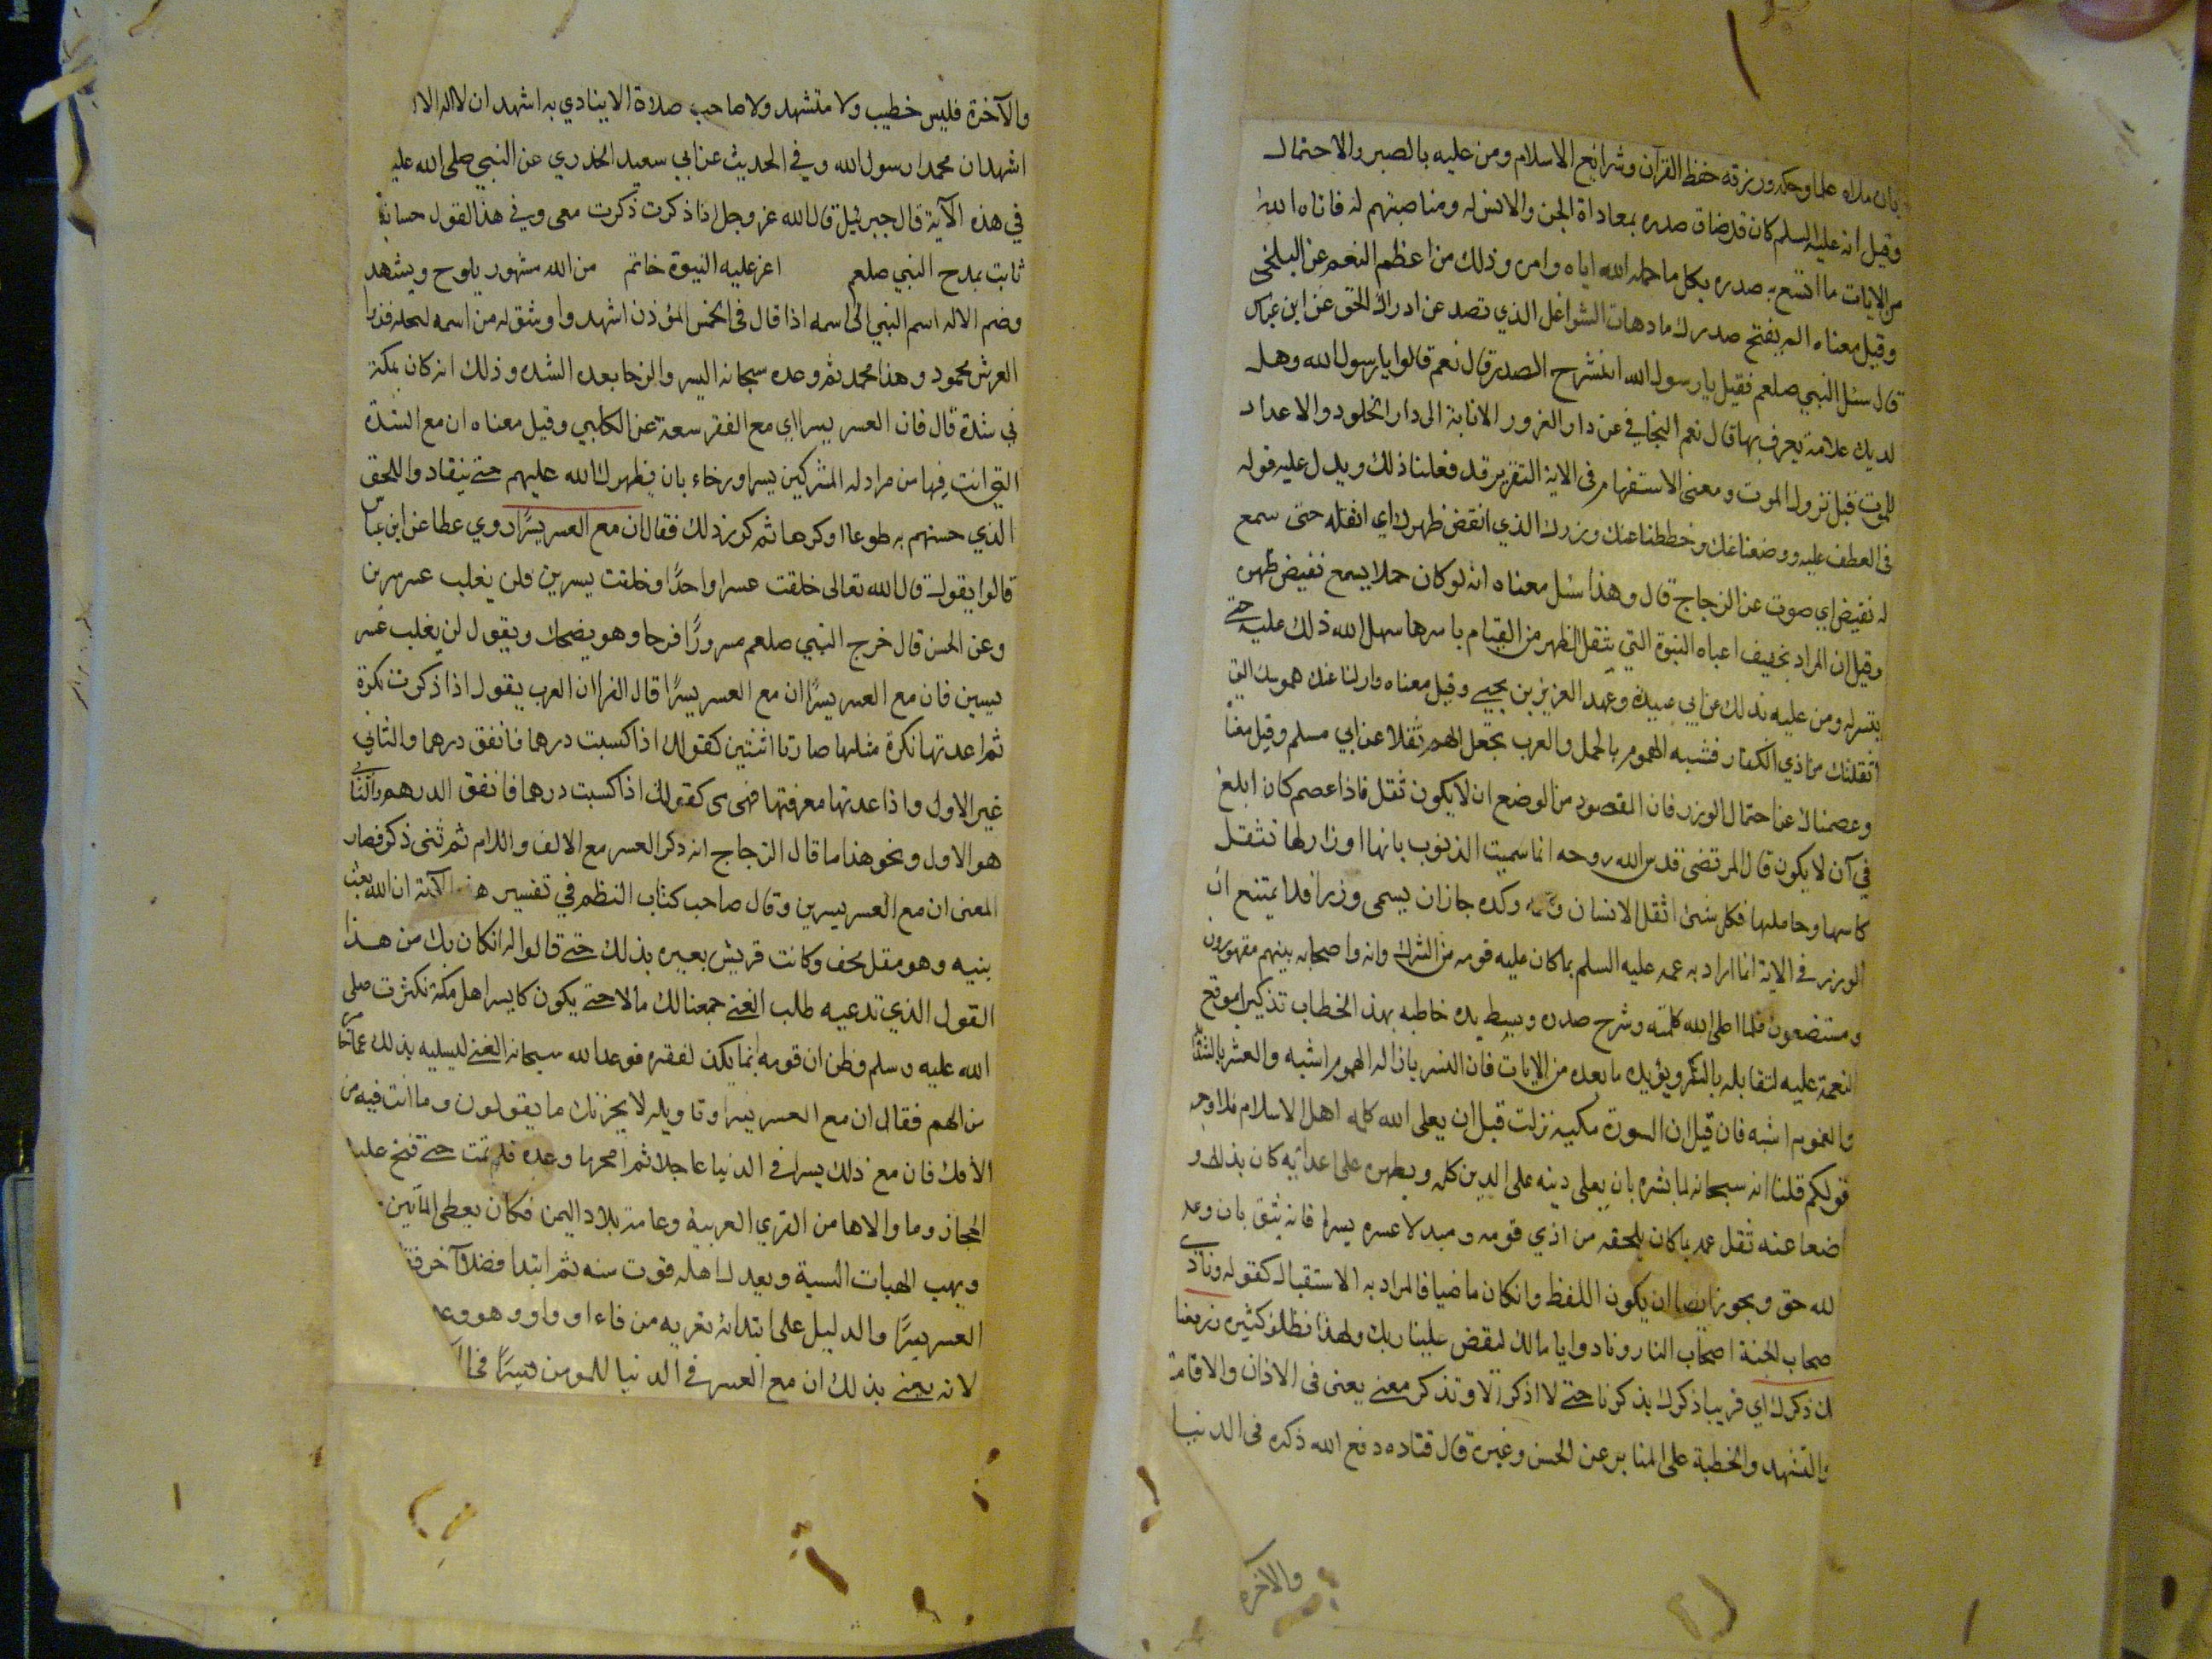 بان ملاه علما وحكمه ورزقه حفظ القرآن وشرائع الاسلام ومن عليه بالصبر والاحتمال
وقيل انه عليه السلم كان قد ضاق صدره بمعاداة الجن والانس له ومناصبتهم له فاتاه الله
من الايات ما اتسع به صدره بكل ما حمله الله اياه وامره وذلك من اعظم النعم عن البلخى
وقيل معناه الم يفتح صدرك باذهاب الشواغل الذي تصد عن ادراك الحق عن ابن عباس
قال سئل النبي صلعم فقيل يا رسول الله اينشرح الصدر قال نعم قالوا يا رسول الله وهل
لديك علامة يعرف بها قال نعم التجافي عن دار الغرور الانابة الى دار الخلود والاعداد
للموت قبل نزول الموت ومعنى الاستفهام في الاية التقرير قد فعلنا ذلك ويدل عليه قوله
فى العطف عليه ووضعنا عنك وحططنا عنك وزرك الذي انقض ظهرك اي اثقله حتى سمع
له نقيض اي صوت عن الزجاج قال وهذا مثل معناه انه لو كان حملا يسمع نقيض ظهره
وقيل ان المراد تخفيف اعباه النبوة التي يثقل الظهر من القيام باسرها سهل الله ذلك عليه حتى
يتسر له ومن عليه بذلك عن ابي عبيدة وعبد العزيز بن يحيى وقيل معناه وازلنا عنك همومك التي
اثقلتك من اذي الكفار فشبه الهموم بالحمل والعرب تجعل الهم ثقلا عن ابي مسلم وقيل معناه
وعصمناك عن احتمال الوزر فان المقصود من الوضع ان لا يكون ثقل فاذا عصم كان ابلغ
في آن لا يكون قال المرتضى قدس الله روحه انما سميت الذنوب بانها اوزار لها تثقل
كاسبها وحاملها فكل شئ اثقل الانسان وغمه وكده جاز ان يسمى وزرا فلا يمتنع ان
الوزر في الاية انما اراد به غمه عليه السلم بما كان عليه قومه من الشرك وانه واصحابه بينهم مقهورون
ومستضعون فلما اعلى الله كلمته وشرح صدره وبسط يده خاطبه بهذ الخطاب تذكيرا بموقع
النعمة عليه لتقابله بالشكر ويؤيده ما بعده من الايات فان اليسر بازاله الهموم اشبه والعسر بالشدائد
والغموم اشبه فان قيل ان السورة مكيه نزلت قبل ان يعلى الله كلمه اهل الاسلام فلا وجه
قولكم قلنا انه سبحانه لما بشره بان يعلى دينه على الدين كله ويظهره على اعدائه كان بذلك و
اضعا عنه ثقل غمه بما كان يلحقه من اذي قومه ومبدلا عسره يسرا فانه يثق بان وعد
لله حق ويجوز ايضا ان يكون اللفظ وان كان ماضيا فالمراد به الاستقبال كقوله ونادى
صحاب الجنة اصحاب النار ونادوا يا مالك ليقض علينا ربك ولهذا نظائر كثيره ورفعنا
لك ذكرك اي قرينا ذكرك بذكرنا حتى لا اذكر الا وتذكر معى يعنى فى الاذان والاقامة
والتشهد والخطبة على المنابر عن الحسن وغيره قال قتاده رفع الله ذكره فى الدنيا
والاخرة
والآخرة فليس خطيب ولا متشهد ولا صاحب صلاة الا ينادي به اشهد ان لا اله الا
اشهد ان محمدا رسول الله وفي الحديث عن ابي سعيد الخدري عن النبي صلى الله عليه
في هذه الآية قال جبرئيل قال الله عز وجل اذا ذكرت ذكرت معى وفي هذا القول حسان
ثابت يمدح النبي صلعم اعز عليه النبوة خاتم من الله مشهور يلوح ويشهد
وضم الاله اسم النبي الى اسمه اذا قال فى الخمس المؤذن اشهد وا وشق له من اسمه ليجله فذو
العرش محمود وهذا محمد ثم وعده سبحانه اليسر والرخا بعده الشده وذلك انه كان بمكة
في شدة قال فان العسر يسرا اي مع الفقر سعة عن الكلبي وقيل معناه ان مع الشدة
التي انت فيها من مراد له المشركين يسرا ورخاء بان يظهرك الله عليهم حتى ينقادوا للحق
الذي جئتهم به طوعا او كرها ثم كرر ذلك فقال ان مع العسر يسرًا روي عطا عن ابن عباس
قالوا يقول قال الله تعالى خلقت عسرا واحدًا وخلقت يسرين فلن يغلب عسر يسرين
وعن الحسن قال خرج النبي صلعم مسرورًا فرحا وهو يضحك ويقول لن يغلب عسر
يسرين فان مع العسر يسرًا ان مع العسر يسرًا قال الفرا ان العرب يقول اذا ذكرت نكرة
ثم اعدتها نكرة مثلها صارتا اثنتين كقولك اذا كسبت درهما فانفق درهما والثاني
غير الاول واذا عدتها معرفتها فهى هى كقولك اذا كسبت درهما فانفق الدرهم والثاني
هو الاول ونحو هذا ما قال الزجاج انه ذكر العسر مع الالف واللام ثم ثنى ذكره فصار
المعنى ان مع العسر يسرين وقال صاحب كتاب النظم في تفسير هذه الآية ان الله بعث
نبيه وهو مقل مخف وكانت قريش يعيره بذلك حتى قالوا له ان كان بك من هذا
القول الذي تدعيه طلب الغنى جمعنا لك مالا حتى يكون كايسر اهل مكة فكرث صلى
الله عليه وسلم وظن ان قومه انما يكذ لفقره فوعد الله سبحانه الغنى ليسليه بذلك عما خا
من الهم فقال ان مع العسر يسرا وتاويله لا يحزنك ما يقولون وما انت فيه من
الافك فان مع ذلك يسرا في الدنيا عاجلا ثم انجزها وعده فلم تمت حتى فتح عليه
الحجاز وما والاها من القري العربية وعامة بلاد اليمن فكان يعطى المآتين
ويهب الهبات السنية ويعد لاهله قوت سنه ثم ابتدا فضلا آخر
العسر يسرًا والدليل على ابتدائه تعريه من فاء او واو وهو وع
لانه يعنى بذلك ان مع العسر في الدنيا للمومن يسرًا فى ا